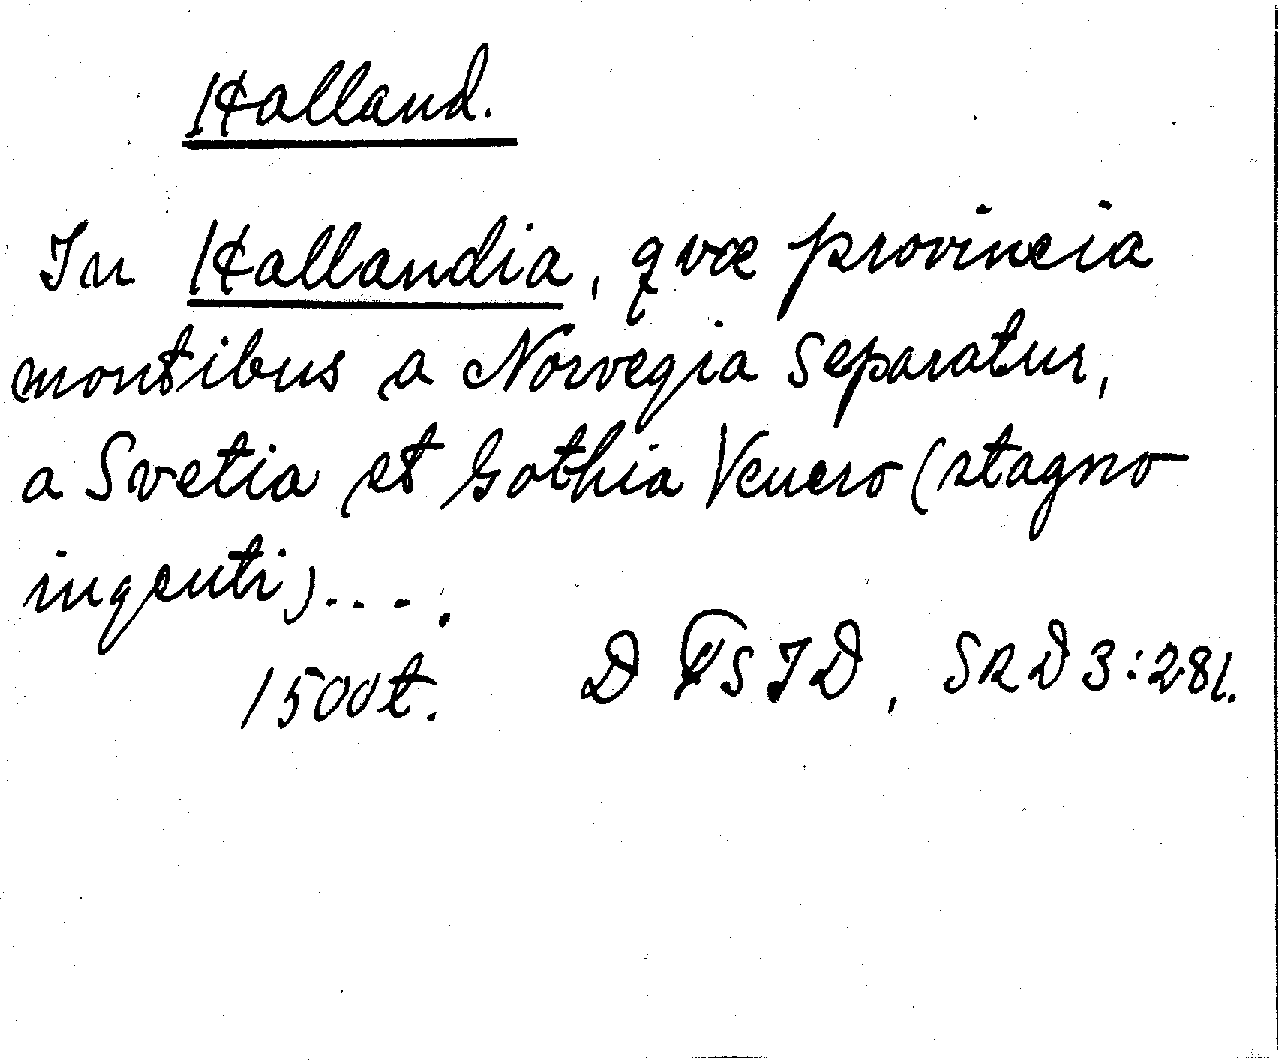 Halland.
In Hallandia, qvæ provincia
montibus a Norvegia separatur,
a Svetia et Gothia Venero (stagno
ingenti) . . . .
1500t. SRD 3:281.